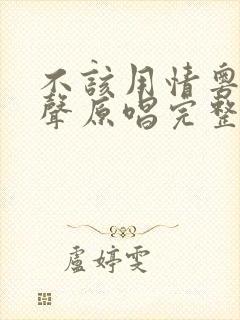 不該用情粵
聲原唱完整
盧婷雯